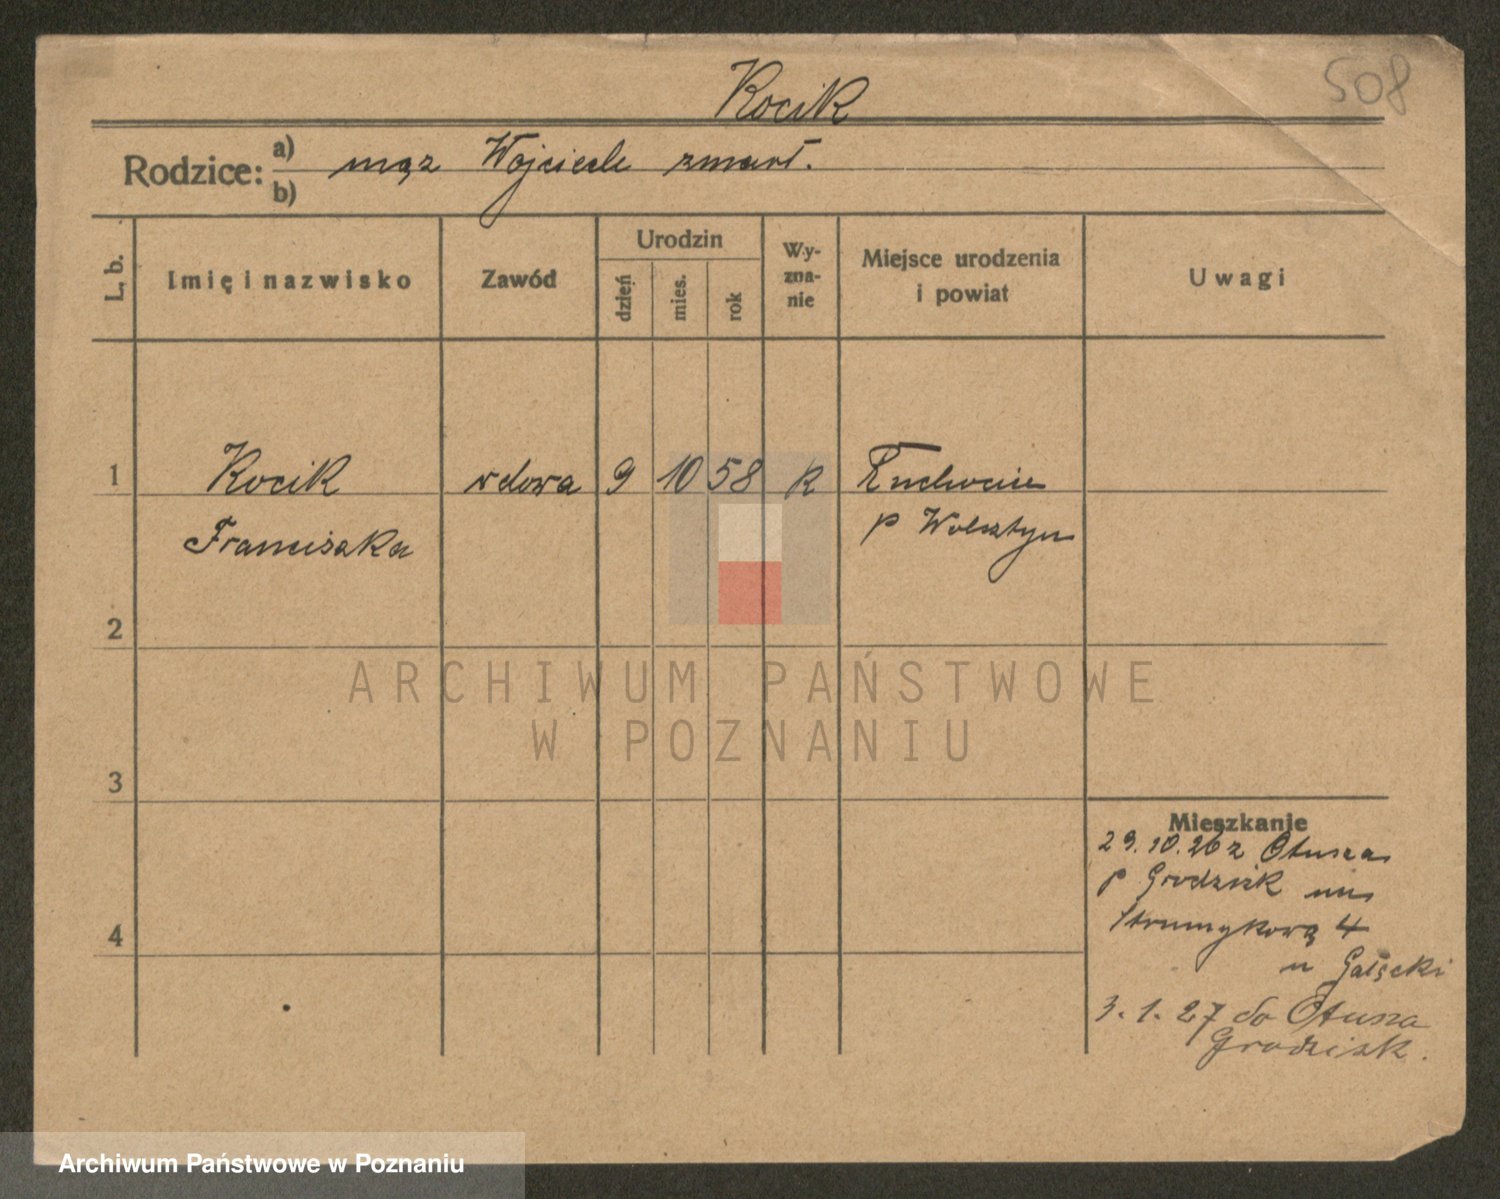 508
Kocik
Rodzice: a) mąż Wojciech zmarł.
b)
L. b.
Imię i nazwisko
Zawód
Urodzin
dzień
mies.
rok
Wy-
zna-
nie
Miejsce urodzenia
i powiat
Uwagi
1 Kocik wdowa 9 10 58 K
Franciszka p Wolsztyn
2
3
4
Mieszkanie
29.10.26 z Otusza
p Grodzisk
Strumykowa 4
u
3.1.27 do Otusza
Grodzisk.
ARCHIWUM PAŃSTWOWE
W POZNANIU
Archiwum Państwowe w Poznaniu